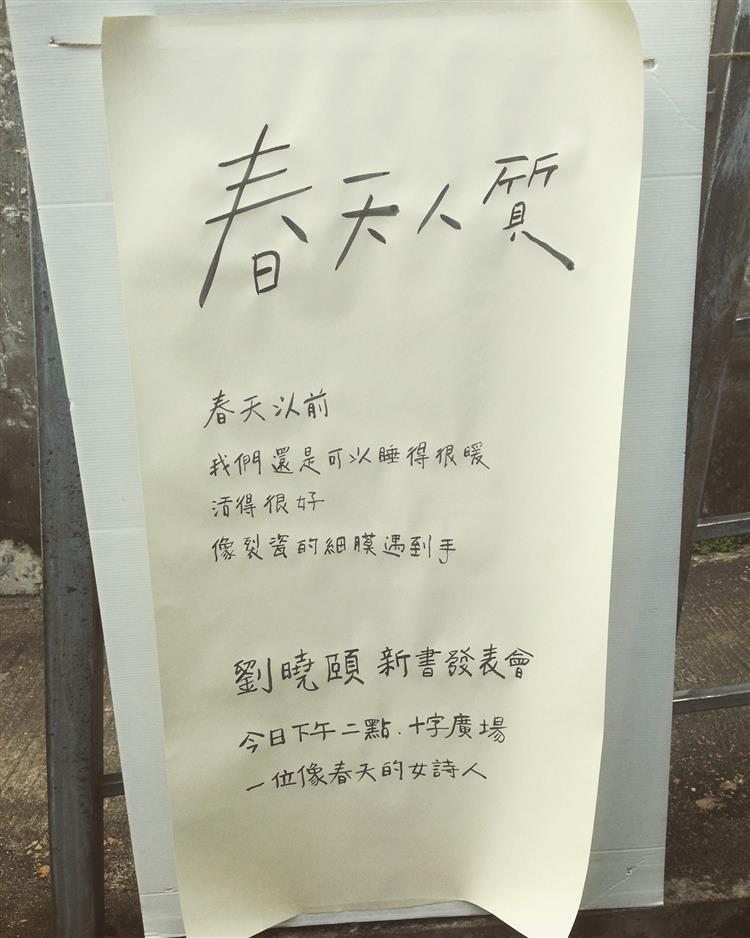 春天人質
春天以前
我們還是可以睡得很暖
活得很好
像裂瓷的細膜遇到手
劉曉頤 新書發表會
今日下午二點.十字廣場
一位像春天的女詩人